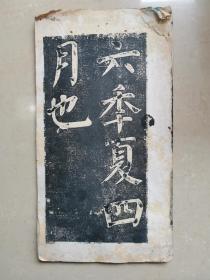 六年夏四
月也